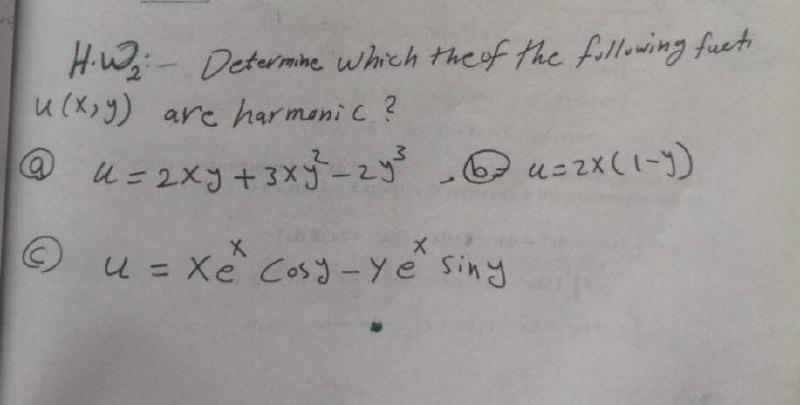 H.W₂:- Determine which the of the following fucti
u(x,y) are harmonic?
ⓐ u = 2xy + 3xy² - 2y³ , ⓑ u = 2x(1-y)
ⓒ u = xeˣ cosy - yeˣ siny